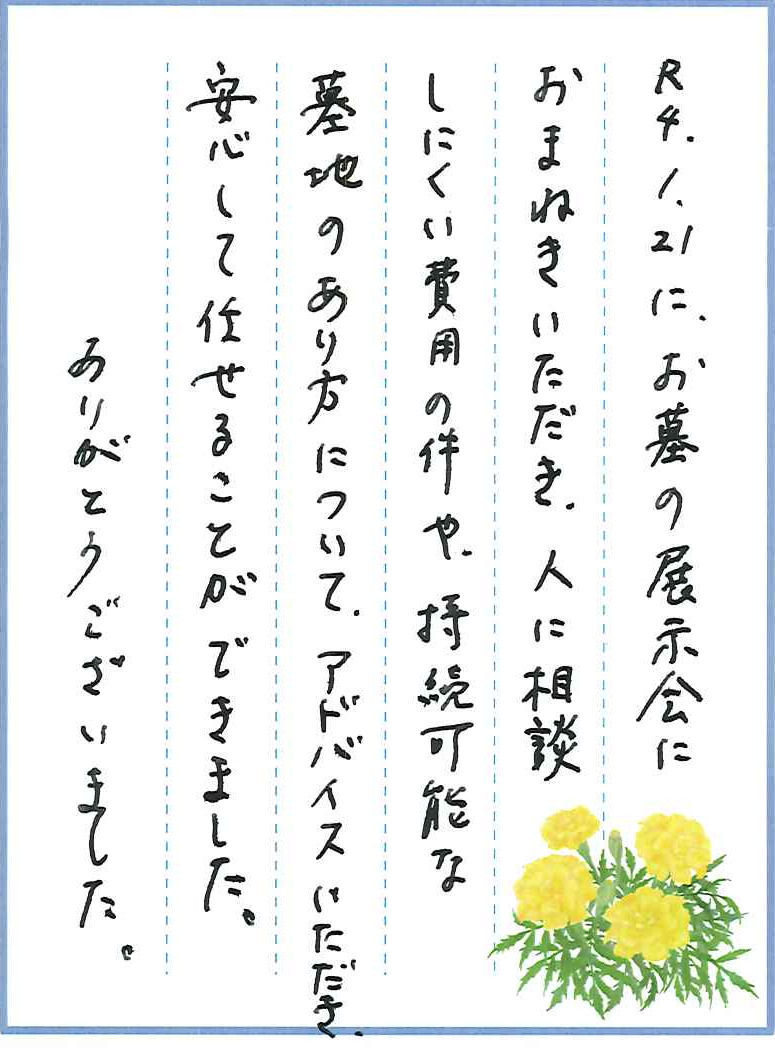 R4.1.21に、お墓の展示会に
おまねきいただき、人に相談
しにくい費用の件や、持続可能な
墓地のあり方について、アドバイスいただき、
安心して任せることができました。
ありがとうございました。